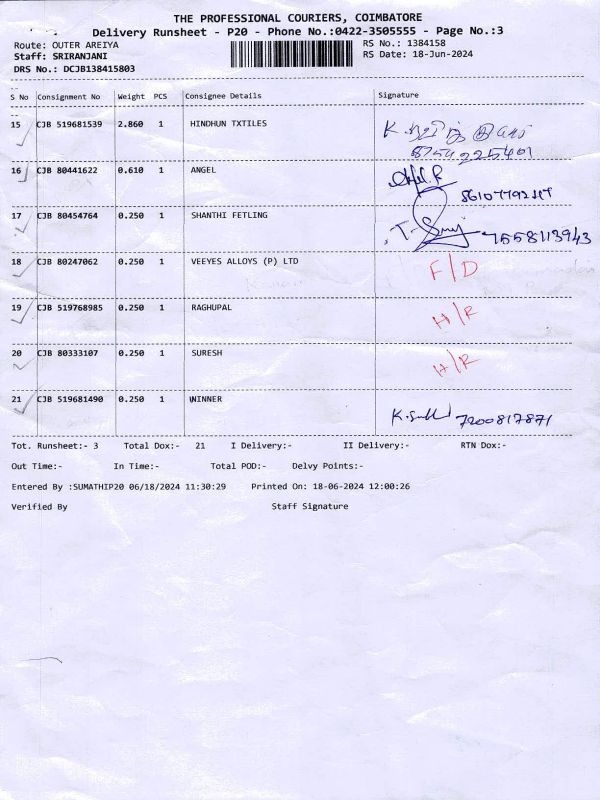 THE PROFESSIONAL COURIERS, COIMBATORE
Delivery Runsheet - P20 - Phone No.:0422-3505555 - Page No.:3
Route: OUTER AREIYA RS No.: 1384158
Staff: SRIRANJANI RS Date: 18-Jun-2024
DRS No.: DCJB138415803
S No Consignment No Weight PCS Consignee Details Signature
15 CJB 519681539 2.860 1 HINDHUN TXTILES
8754225401
16 CJB 80441622 0.610 1 ANGEL
17 CJB 80454764 0.250 1 SHANTHI FETLING 7558113943
18 CJB 80247062 0.250 1 VEEYES ALLOYS (P) LTD F/D
19 CJB 519768985 0.250 1 RAGHUPAL H/R
20 CJB 80333107 0.250 1 SURESH H/R
21 CJB 519681490 0.250 1 WINNER 7200817871
Tot. Runsheet:- 3 Total Dox:- 21 I Delivery:- II Delivery:- RTN Dox:-
Out Time:- In Time:- Total POD:- Delvy Points:-
Entered By :SUMATHIP20 06/18/2024 11:30:29 Printed On: 18-06-2024 12:00:26
Verified By Staff Signature